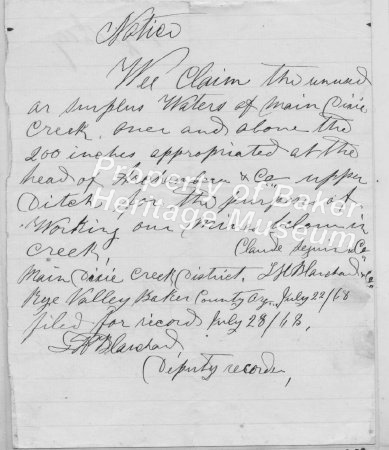 Notice
Wee Claim the unused
or surplus Waters of Main Dixie
Creek, over and above the
200 inches appropriated at the
head of & Co upper
Ditch for the purpose of
Working our mine claim in
creek, Claude & Co
Main Dixie Creek District. L H Blanchard & Co
Rye Valley Baker County Ogn. July 22/68
filed for record July 28/68,
L H Blanchard
Deputy recorder,
Property of Baker
Heritage Museum